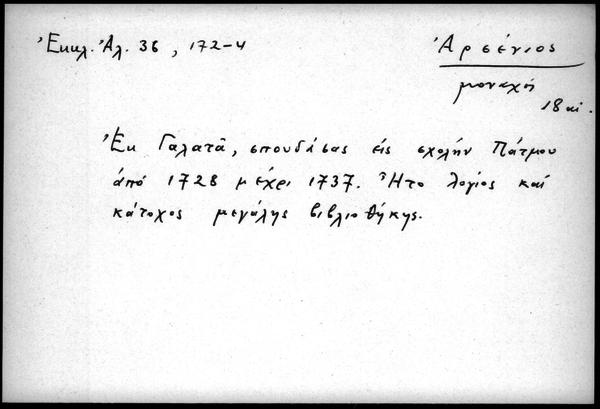 Ἐκκλ. Ἀλ. 36, 172-4
Ἀρσένιος
μοναχός
18 αἰ.
Ἐκ Γαλατᾶ, σπουδάσας εἰς σχολήν Πάτμου
ἀπό 1728 μέχρι 1737. Ἦτο λόγιος καί
κάτοχος μεγάλης βιβλιοθήκης.